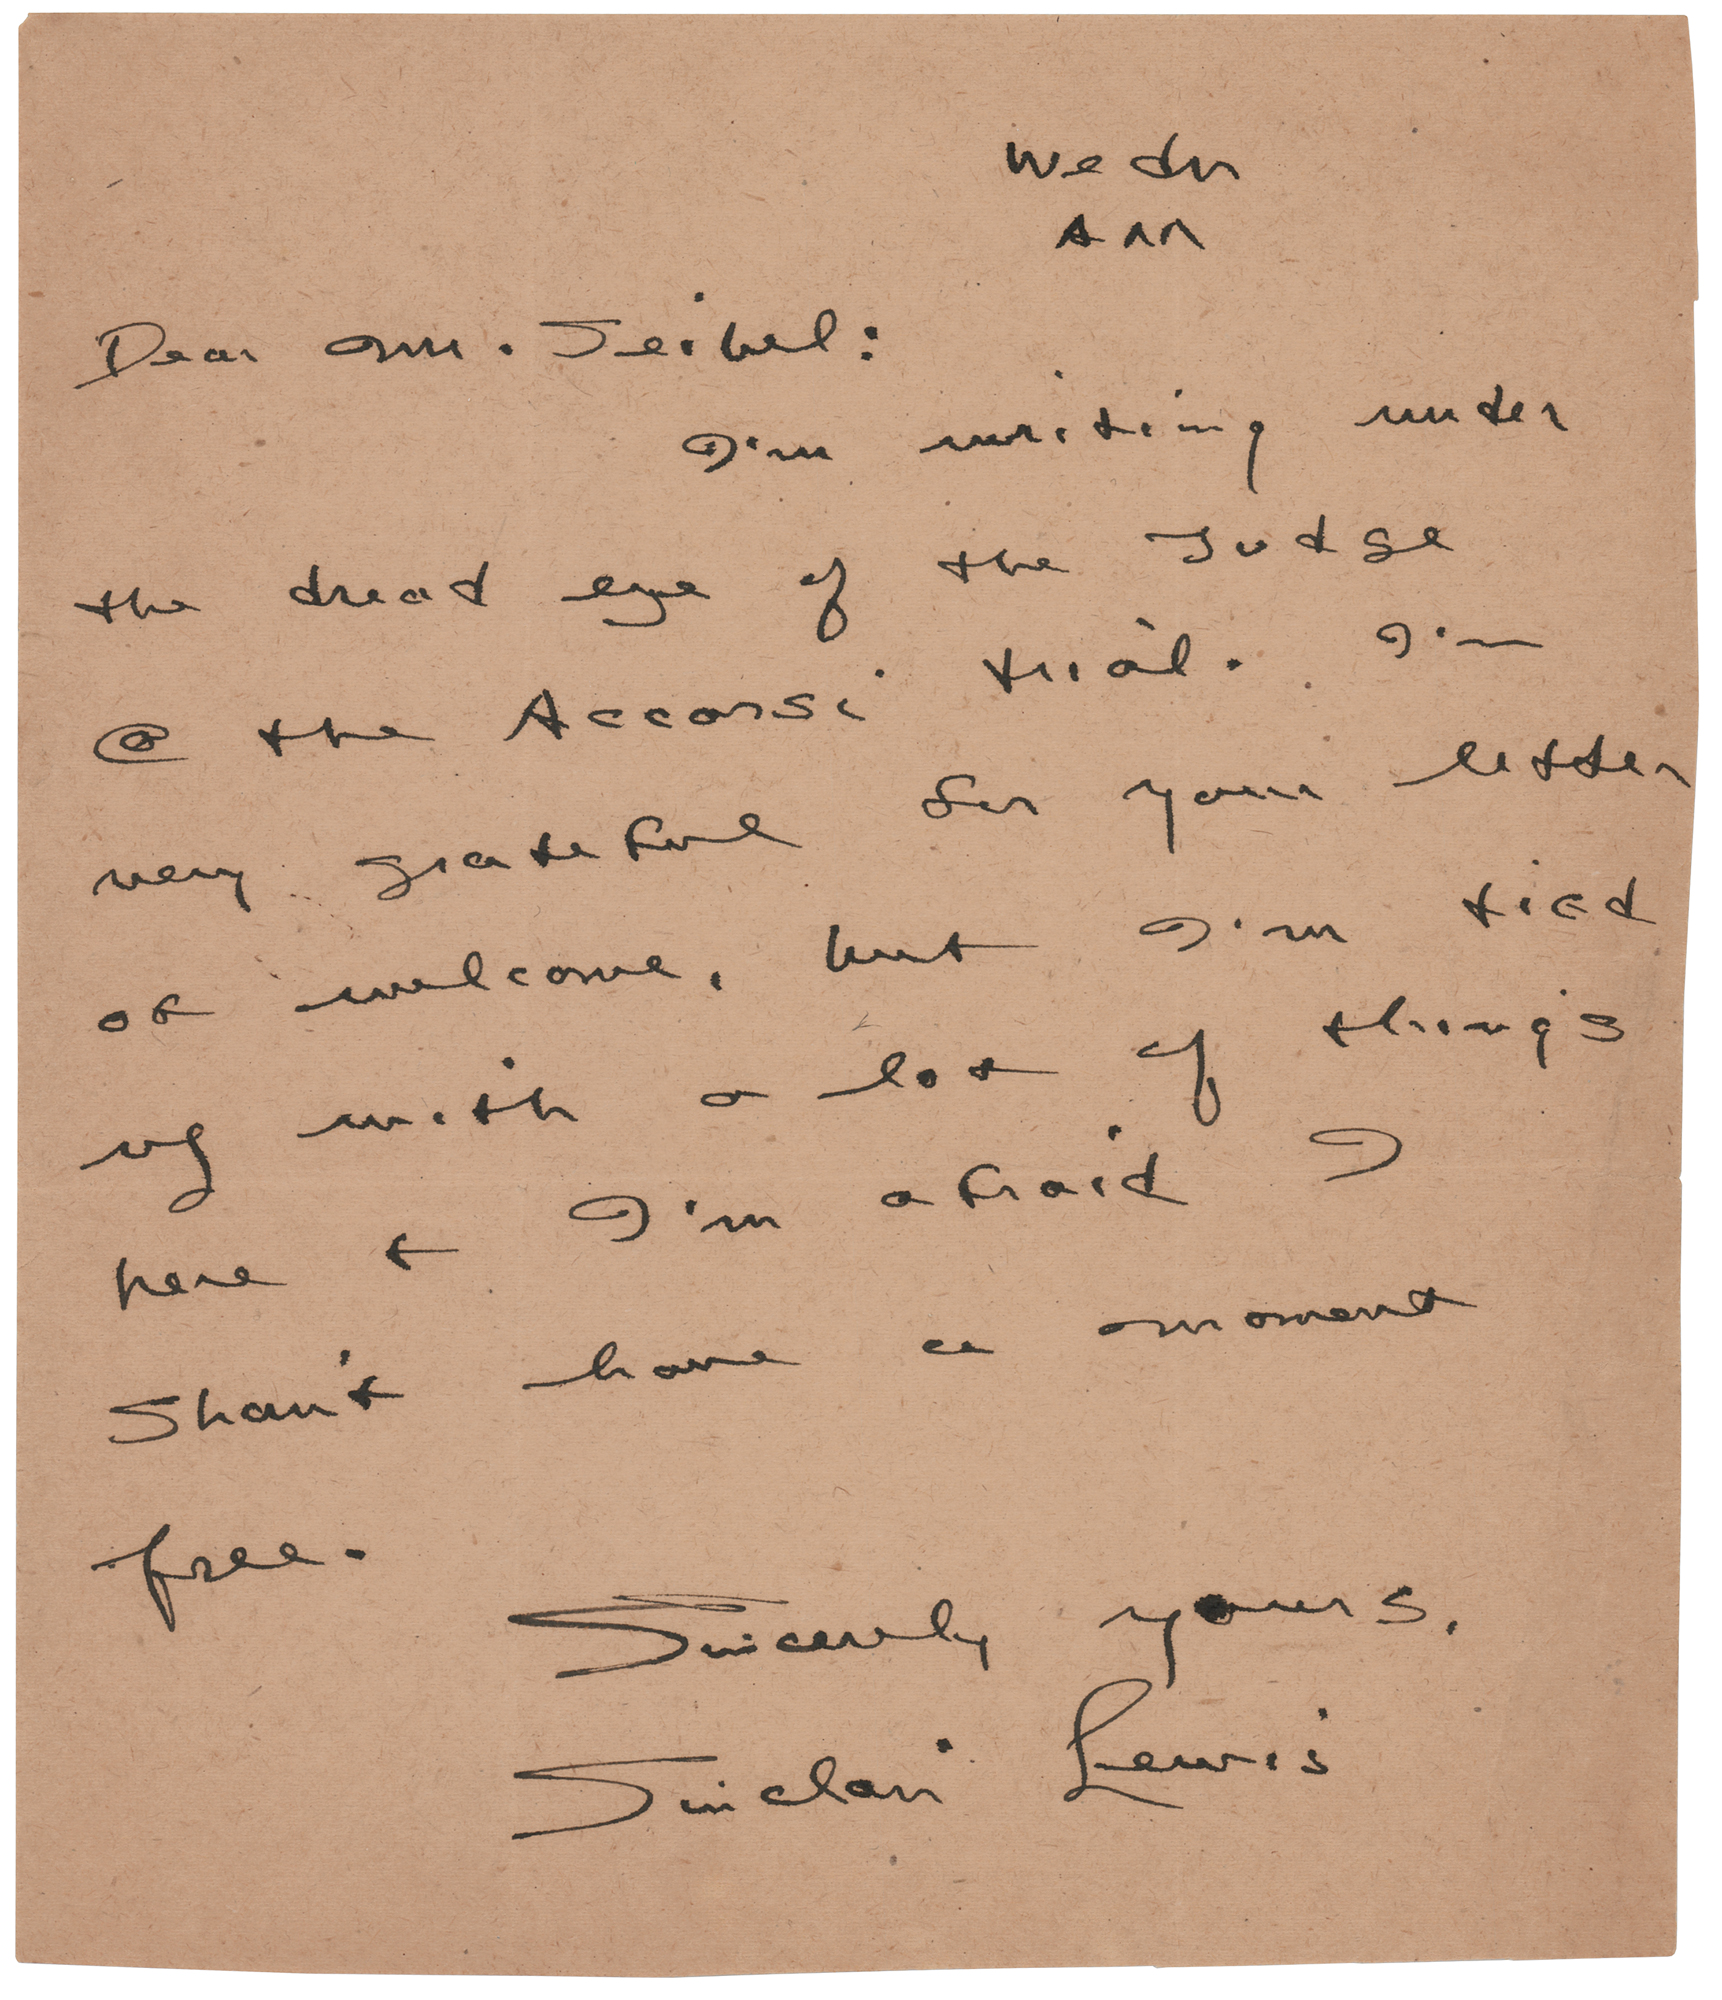 Wedn
AM
Dear Mr. Seibel:
I'm writing under
the dread eye of the Judge
@ the Accorsi trial. I'm
very grateful for your letter
of welcome, but I'm tied
up with a lot of things
here & I'm afraid I
shan't have a moment
free.
Sincerely yours,
Sinclair Lewis